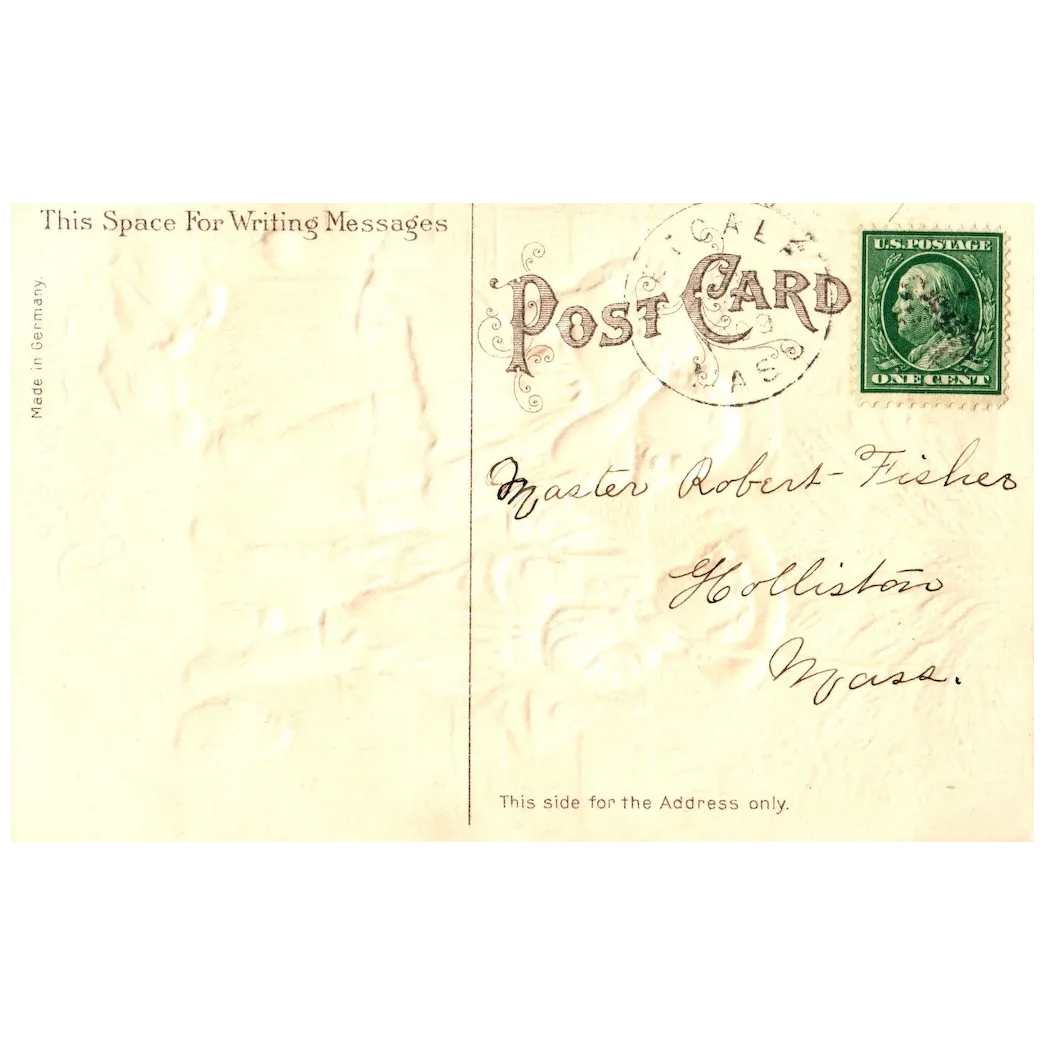 This Space For Writing Messages
Made in Germany.
POST CARD
MASS
U.S. POSTAGE
ONE CENT
Master Robert Fisher
Holliston
Mass.
This side for the Address only.